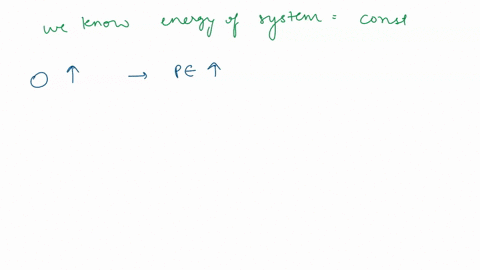 we know energy of system = const
O ↑ → PE ↑